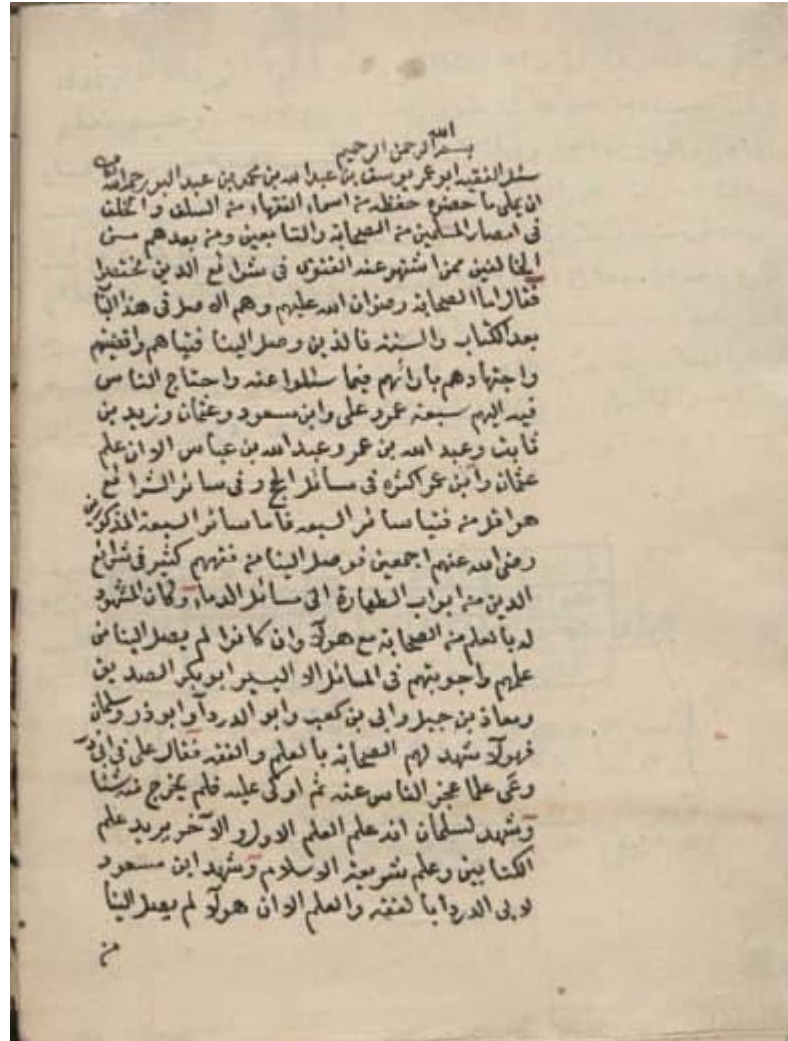 بسم الله الرحمن الرحيم
سئل الفقيه ابو عمر يوسف بن عبد الله بن محمد بن عبد البر رحمه الله
ان يملى ما حضره حفظه من اسماء الفقهاء من السلف والخلف
فى امصار المسلمين من الصحابة والتابعين ومن بعدهم من
الخالفين ممن اشتهر عنه الفتوى فى شرائع الدين مختصرا
فقال اما الصحابة رضوان الله عليهم وهم الاصل فى هذا البا
بعد الكتاب والسنة فالذين وصل الينا فتياهم واقضيتهم
واجتهادهم بارائهم فيما سئلوا عنه واحتاج الناس
فيه اليهم سبعة عمر وعلى وابن مسعود وعثمان وزيد بن
ثابت وعبد الله بن عمر وعبد الله بن عباس الا ان علم
عثمان وابن عمر اكثره فى مسائل الحج وفى سائر الشرائع
هو اقل من فتيا سائر السبعه فاما سائر السبعة المذكورين
رضى الله عنهم اجمعين فوصل الينا من فقههم كثير فى شرائع
الدين من ابواب الطهارة الى مسائل الدماء وكان المشهود
له بالعلم من الصحابة مع هولآ وان كانوا لم يصل الينا من
علمهم واجوبتهم فى المسائل الا اليسير ابو بكر الصديق
ومعاذ بن جبل وابى بن كعب وابو الدردآ وابو ذر وسلمان
فهولآ شهد لهم الصحابة بالعلم والفقه فقال على فى ابى ذر
وعى علما عجز الناس عنه ثم اوكى عليه فلم يخرج منه شئا
وشهد لسلمان انه علم العلم الاول والآخر يريد علم
الكتابين وعلم شريعة الاسلام وشهد ابن مسعود
لابى الدردآ بالفقه والعلم الا ان هولآ لم يصل الينا
من